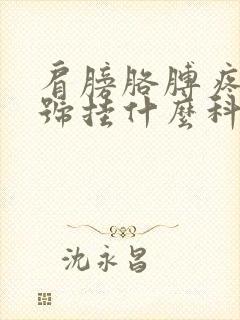 肩膀胳膊疼
號挂什麼科
沈永昌